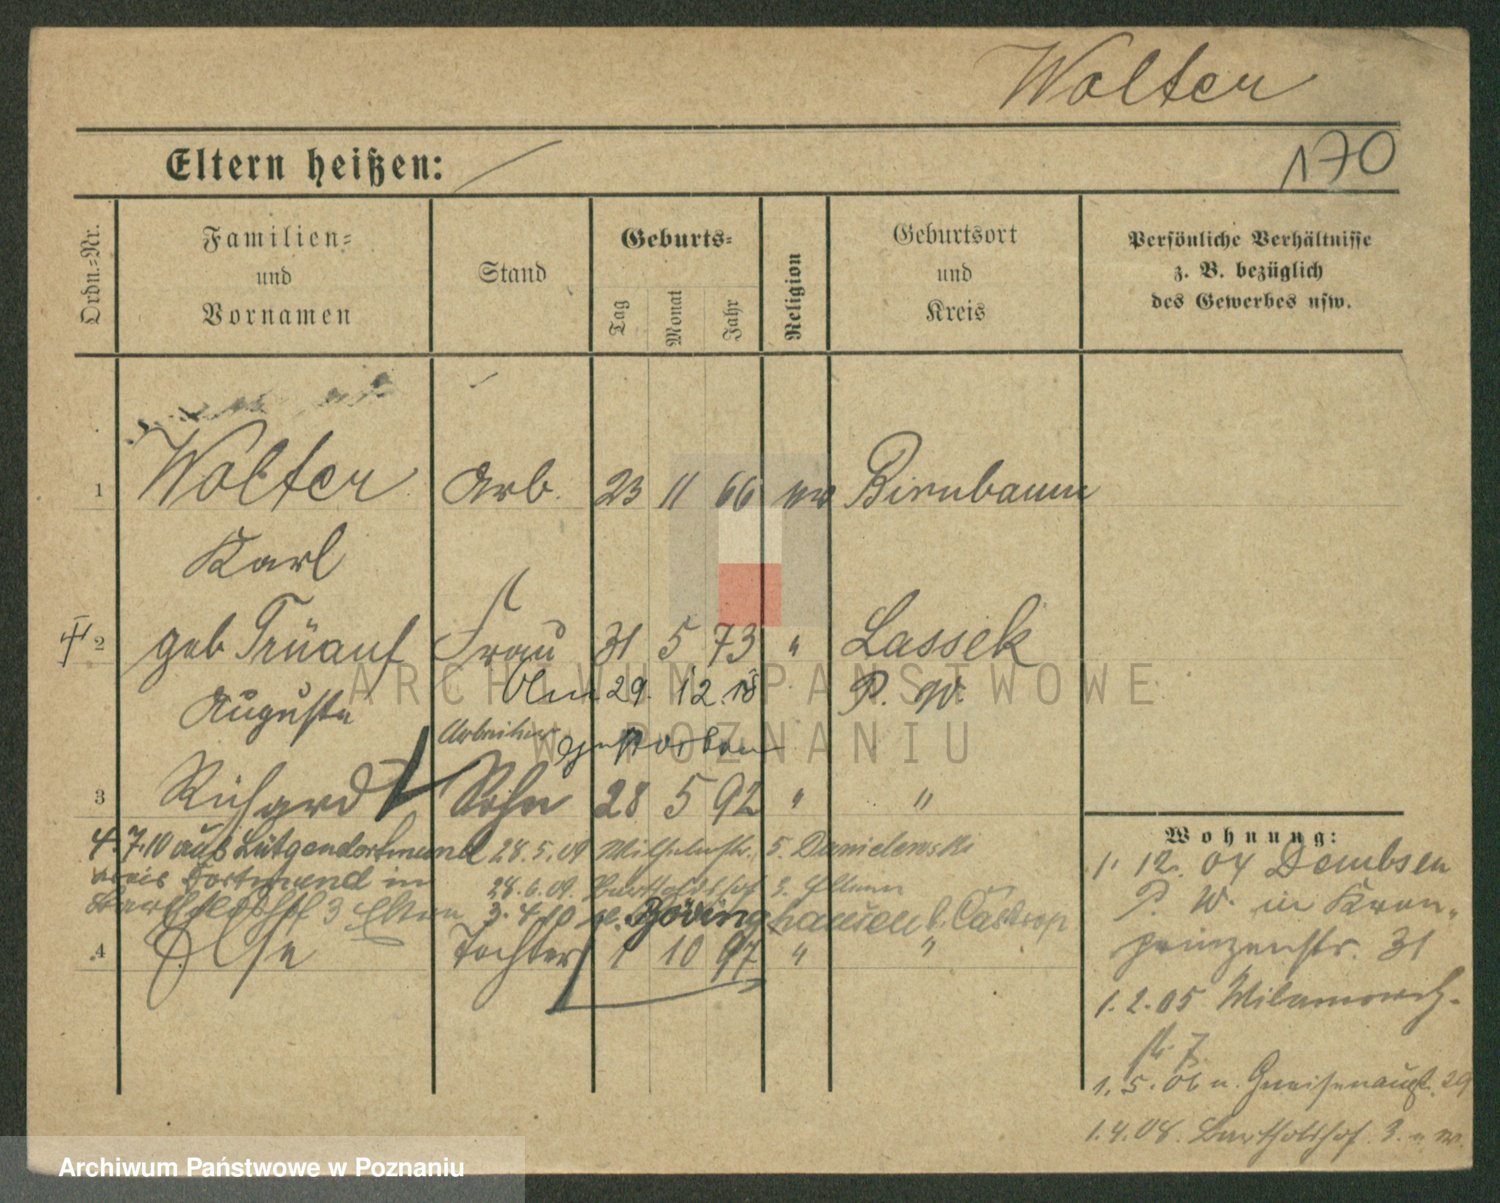 Wolter
170
Eltern heißen:
Ordn.-Nr.
Familien-
und
Vornamen
Stand
Geburts-
Tag
Monat
Jahr
Religion
Geburtsort
und
Kreis
Persönliche Verhältnisse
z. B. bezüglich
des Gewerbes usw.
1 Wolter Arb. 23 11 66 ev Birnbaum
Karl
2 geb Trüauf Frau 31 5 73 " Lassek
Auguste Am 29. 12. 18 P. W.
Arbeiter gestorben
3 Richard Sohn 28 5 92 " "
4.7.10 aus Lütgendortmund 28.5.09 Wilhelmstr. 5. Danielewski
Kreis Dortmund in 28.6.09. Bartholdshof 3. Eltern
Bartholdshof 3 Eltern 3.4.10 n. Bövinghausen b. Castrop
4 Else Tochter 1 10 97 " "
Wohnung:
1. 12. 04 Dembsen
P. W. in Kron-
prinzenstr. 31
1.2.05 Wilamowitz-
str. 7.
1.5.06 n. Gneisenaustr. 29
1.4.08. Bartholdshof 3.
ARCHIWUM PAŃSTWOWE
W POZNANIU
Archiwum Państwowe w Poznaniu